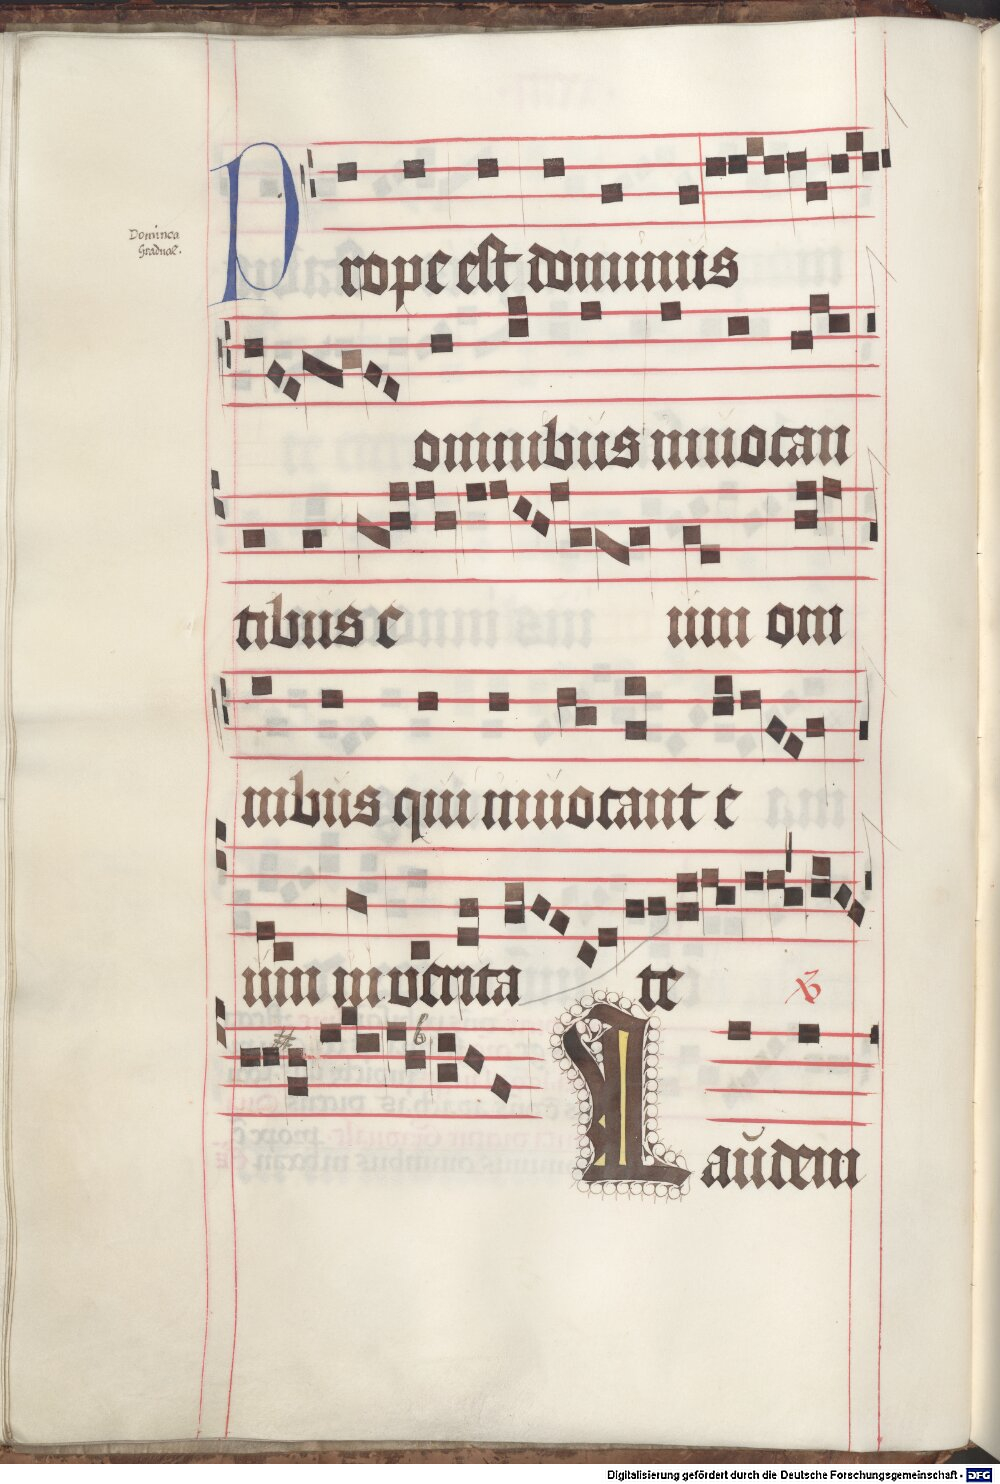 Dominica
Gradual.
Prope est dominus
omnibus inuocan
tibus e um om
nibus qui inuocant e
um in verita te
Laudem
Digitalisierung gefördert durch die Deutsche Forschungsgemeinschaft - DFG